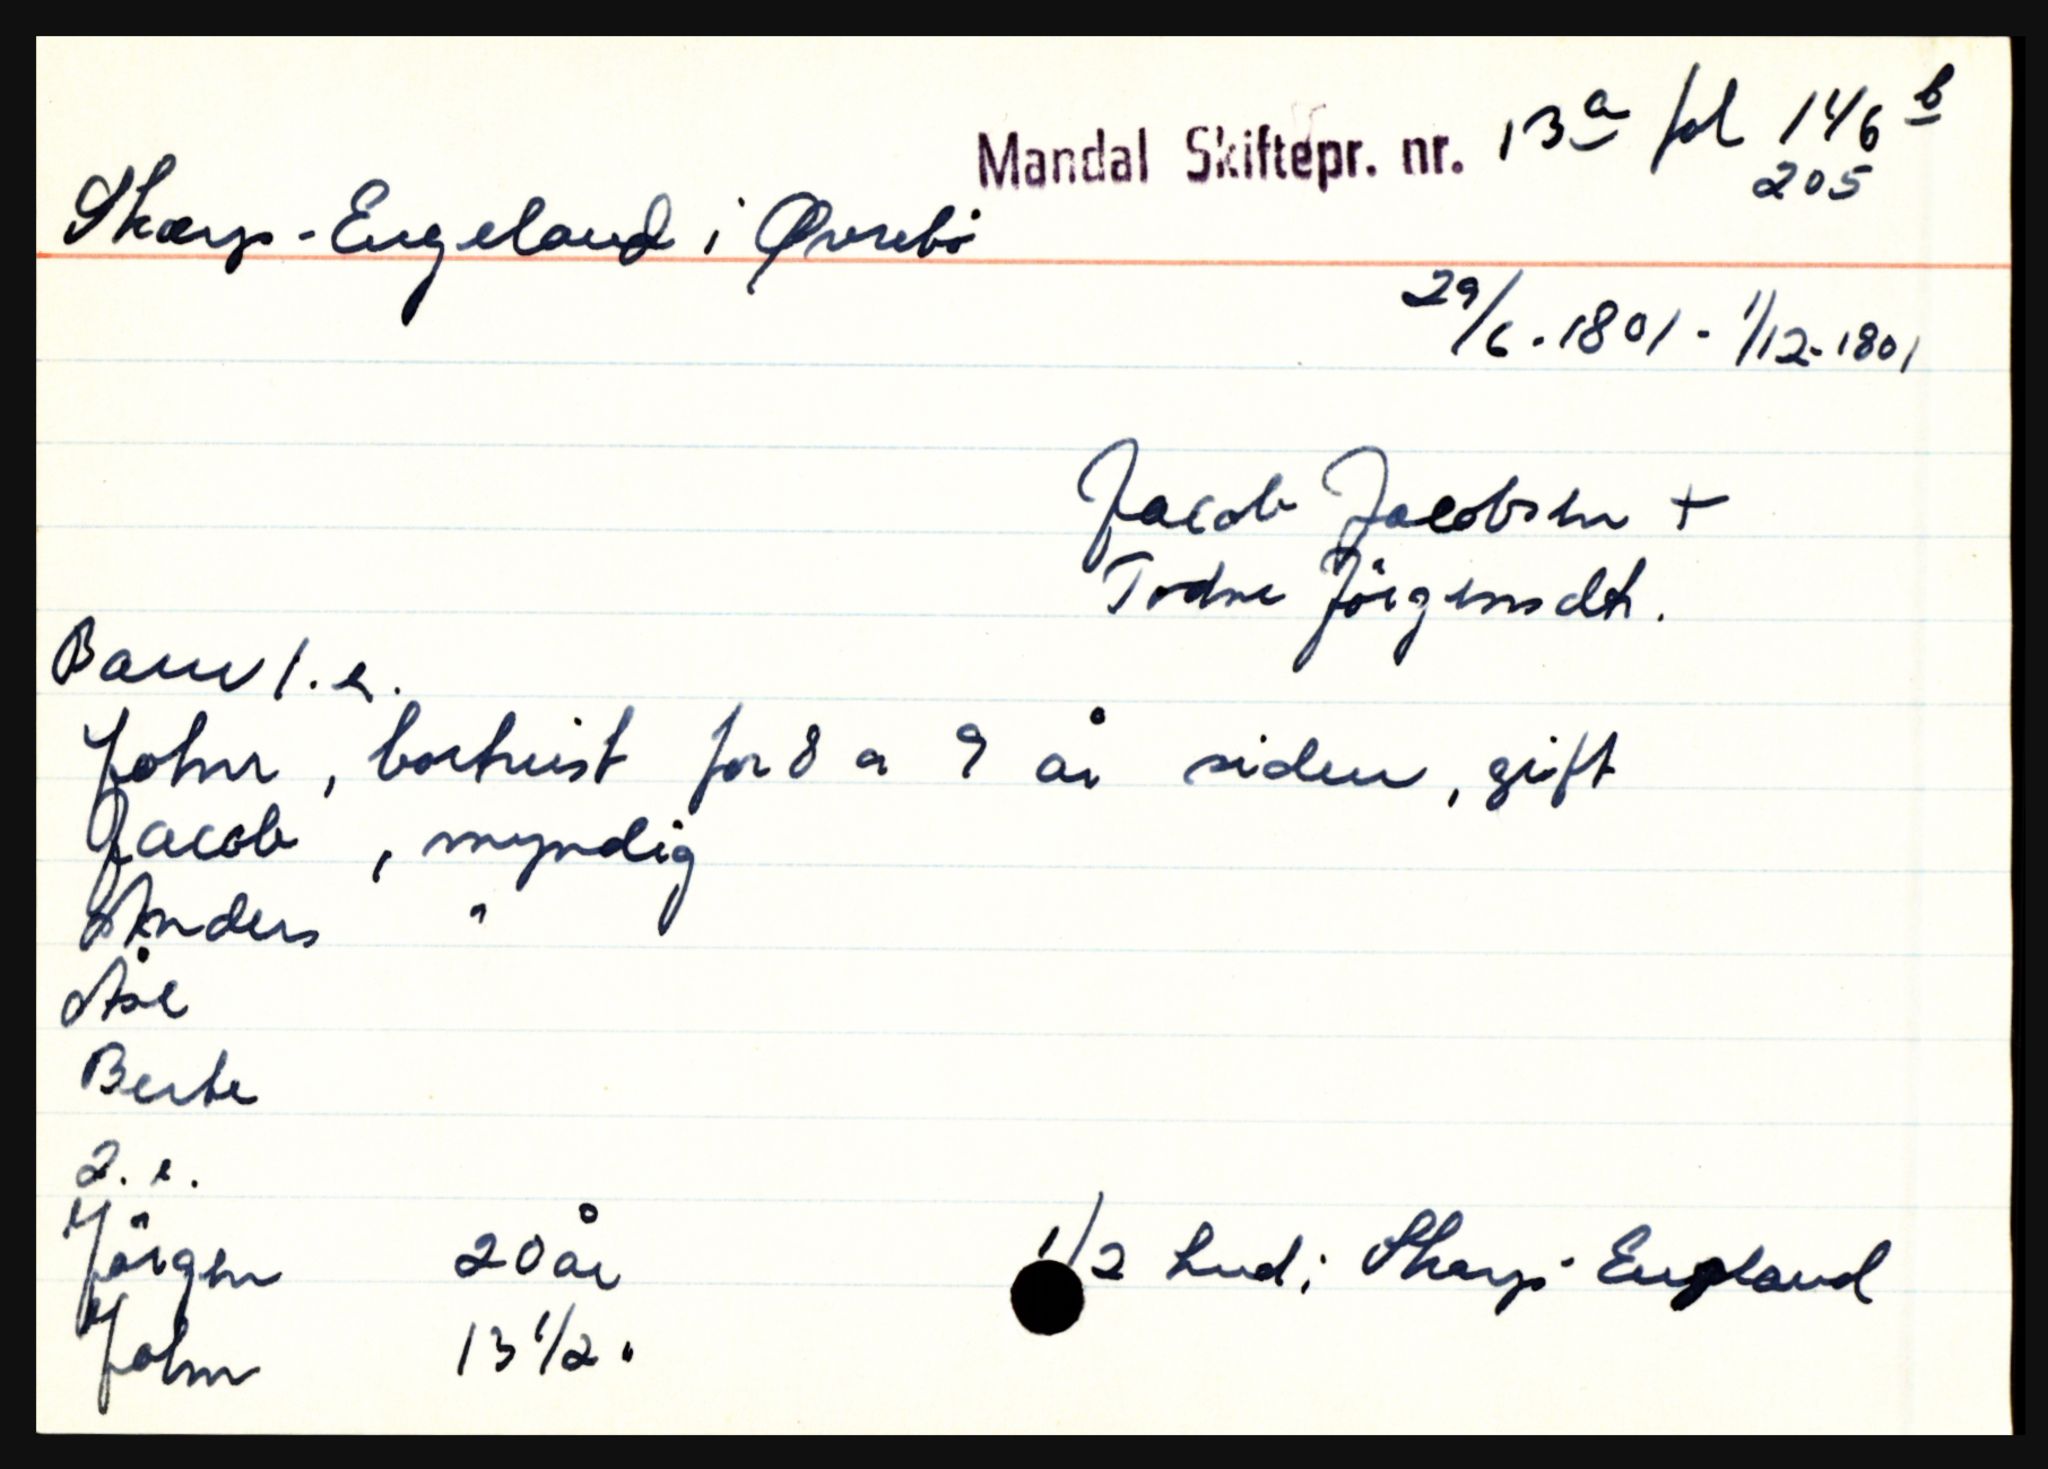 Mandal Skiftepr. nr. 13a fol 146b
205
Skarp-Engeland i Øvrebö
29/6.1801 - 1/12-1801
Jacob Jacobsen +
Todne Jörgensdtr.
Barn 1. e.
John, bortreist for 8 a 9 år siden, gift
Jacob, myndig
Anders "
Åse
Berte
2. e.
Jörgen 20 år
John 13 1/2 "
1/2 hud i Skarp-Engeland